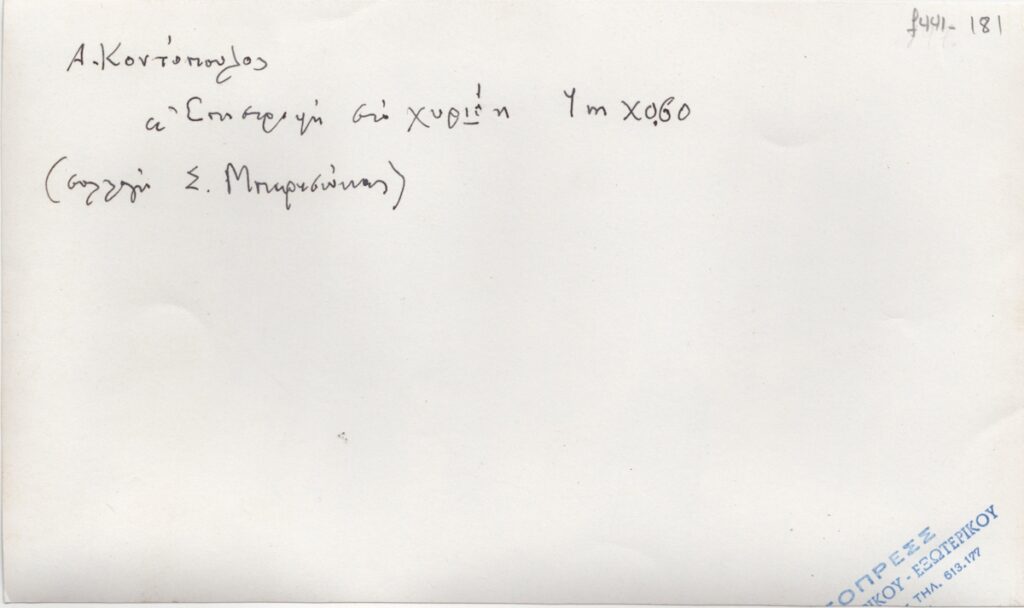 f441- 181
Α. Κοντόπουλος
Επιστροφή στό 1 m χ 0,60
(συλλογή Σ. )
ΟΠΡΕΣΣ
ΙΚΟΥ - ΕΞΩΤΕΡΙΚΟΥ
ΤΗΛ. 613.177